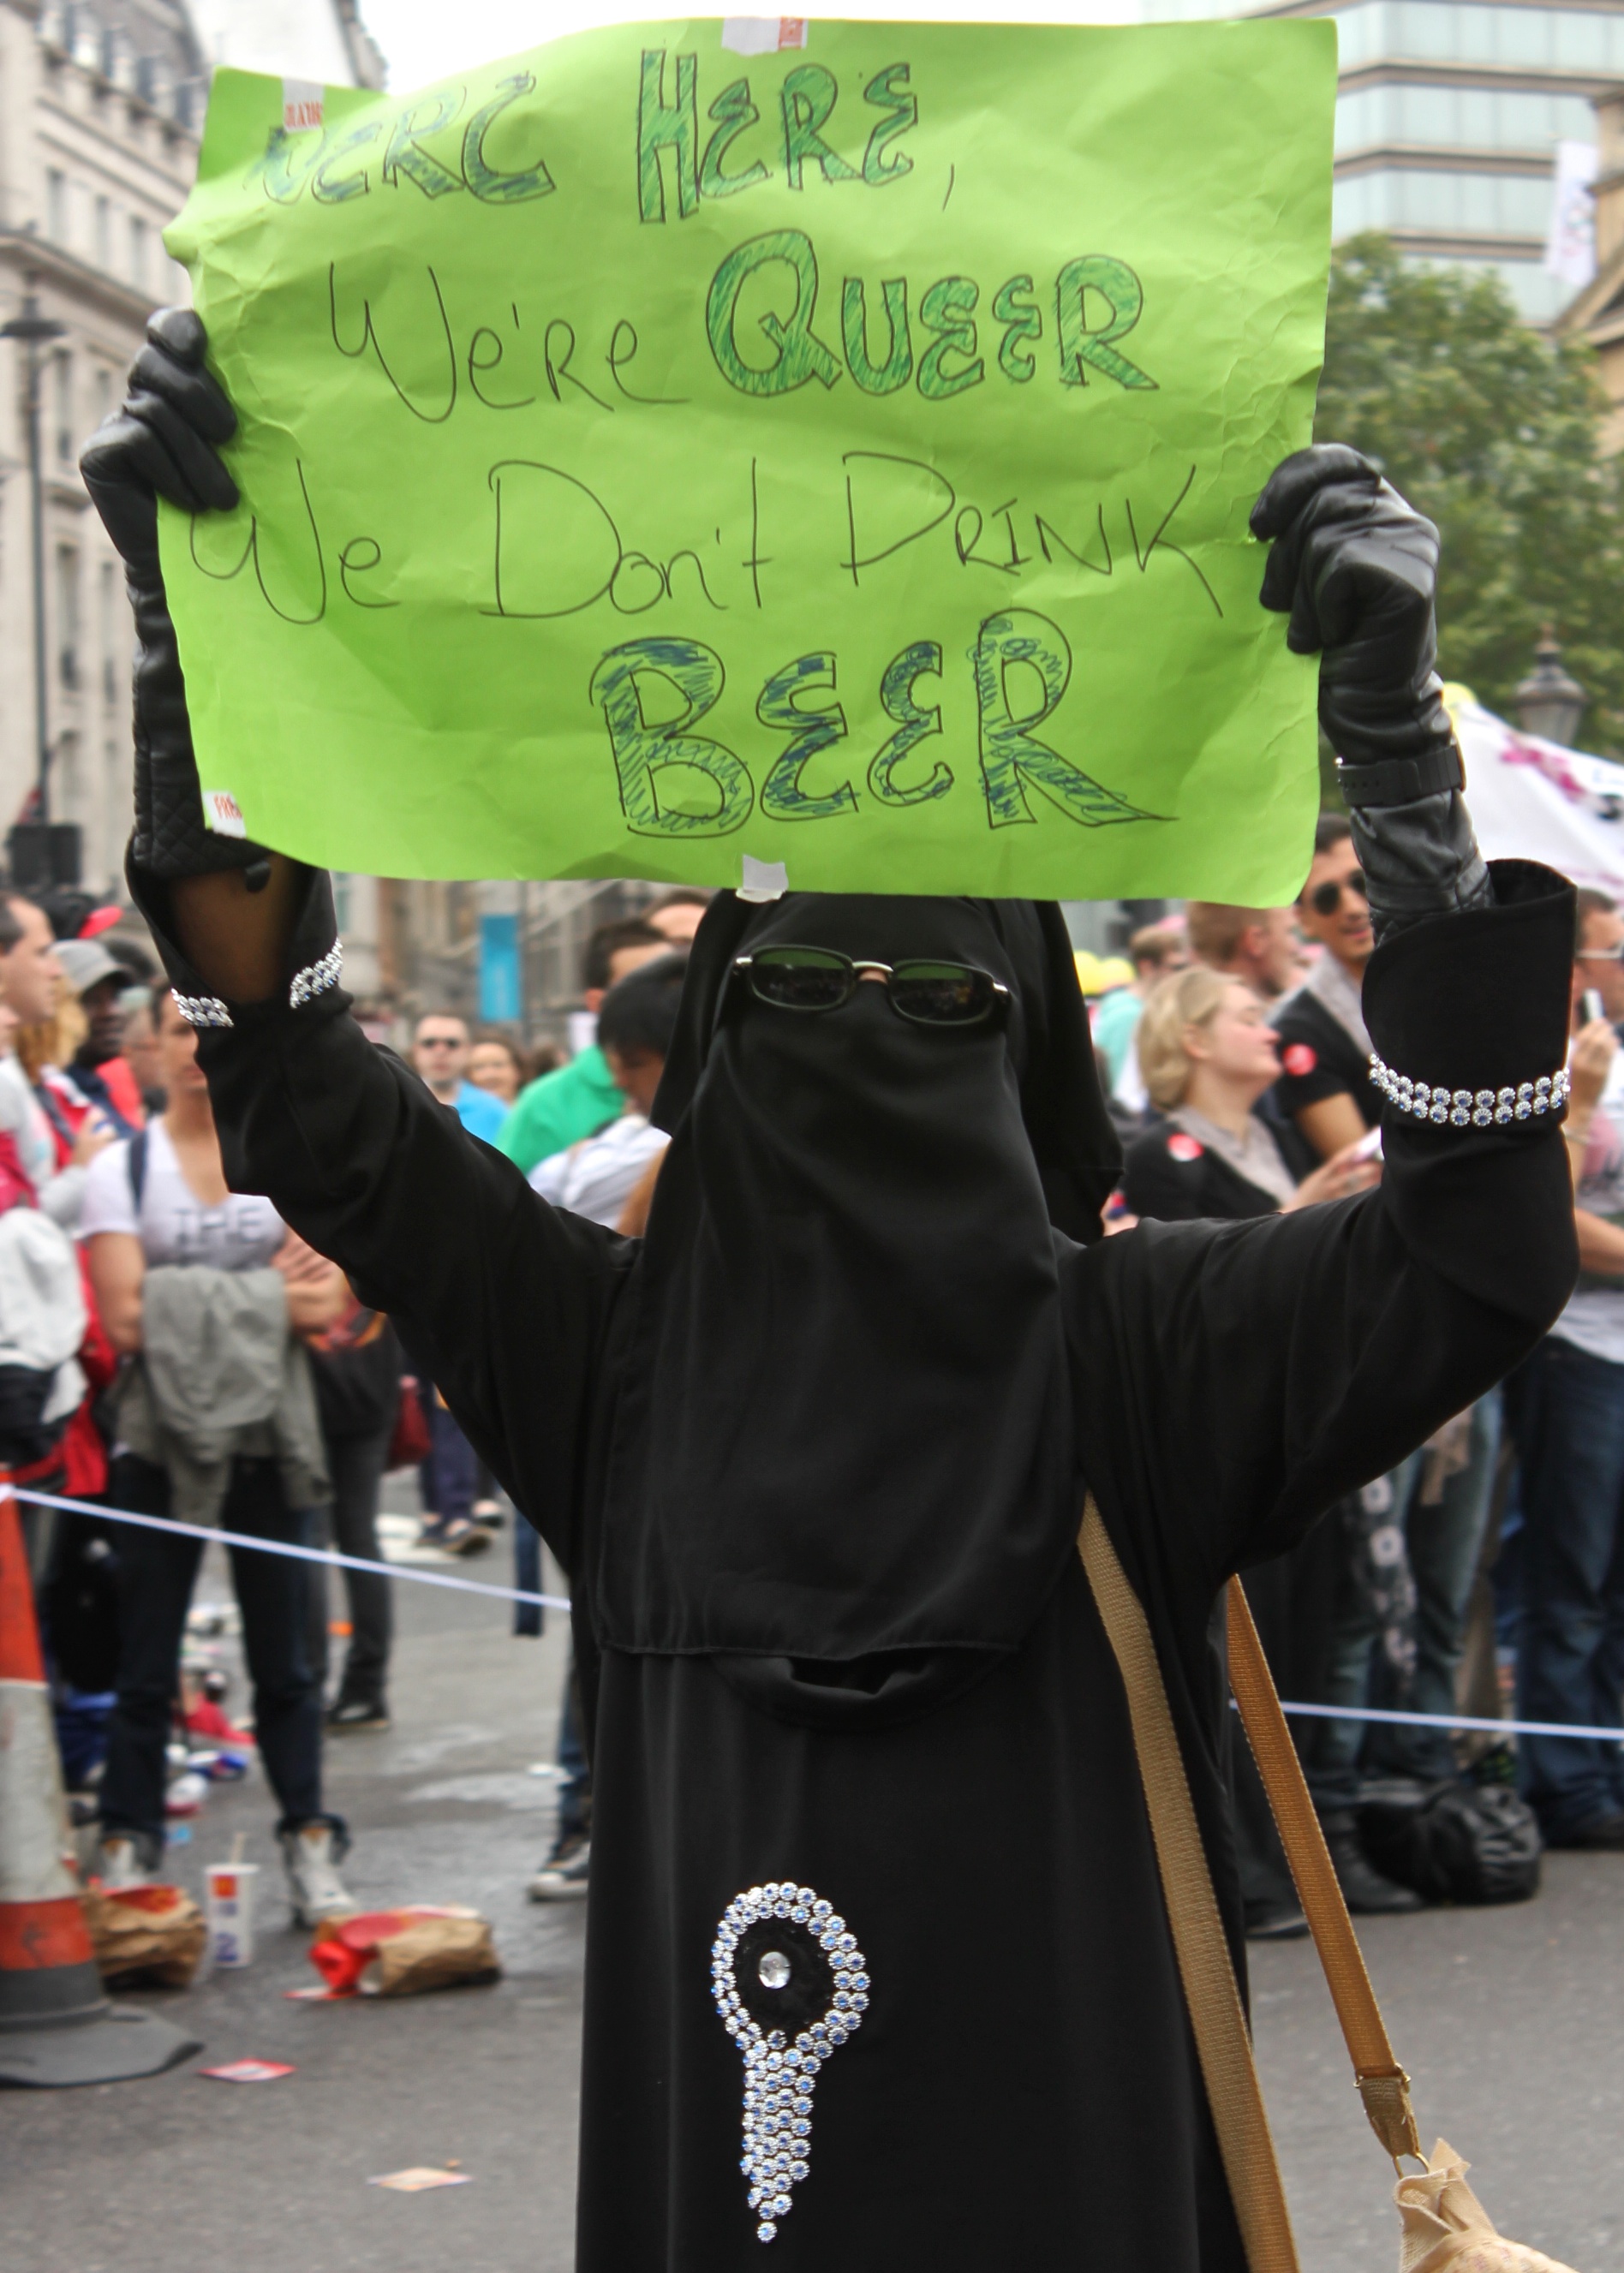 WERE HERE,
We're QUEER
We Don't DRINK
BEER
THE